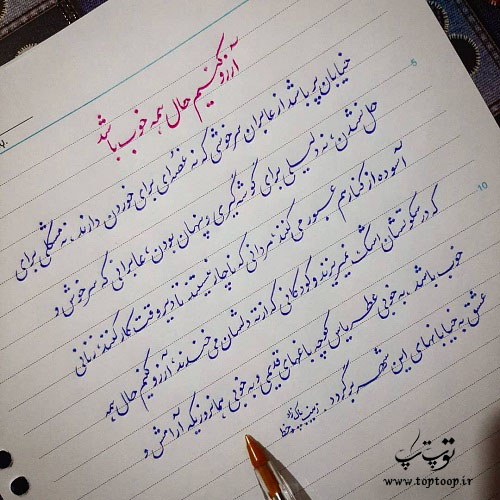 آرزو کنیم حال همه خوب باشد
خیابان پر باشد از عابران سرخوشی که نه غصه‌ای برای خوردن دارند، نه مشکلی برای
حل نشدن، نه دلیلی برای گوشه‌گیری و پنهان بودن، عابرانی که سرخوش و
آسوده از کنار هم عبور می‌کنند. مردانی که ناچار نیستند تا دیر وقت کار کنند، زنانی
که در سکوتشان اشک نمیریزند و کودکانی که از ته دلشان می‌خندند. آرزو کنیم حال همه
خوب باشد. به خوبی عطر یاس کوچه باغهای قدیمی و به خوبی همانروزیکه آرامش و
عشق به خیابانهای این شهر برگردد.
5
10
توپ تاپ
www.toptoop.ir